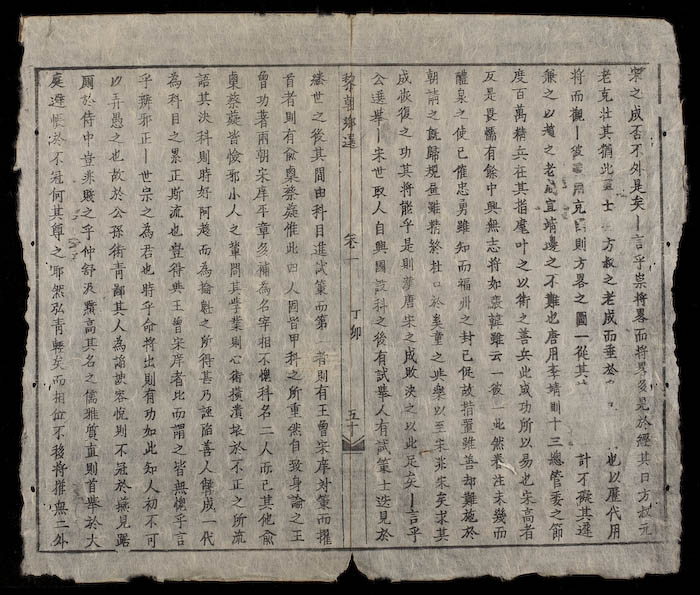 之成否不外是矣丨言乎崇將畧而將畧後見於經其曰方叔元
老克壯其猶此 士 方叔之老成而垂於 也以歷代用
將而觀丨彼 用克 則方畧之圖一從其 計不礙其遠
兼之以趙之老 宜靖邊之不難也唐用李靖則十三總管委之一節
度百萬精兵在其指麾叶之以術之善兵此成功所以易也宋高者
反是畏懦有餘中興無志將如 韓雖云一彼一此然眷注未幾而
醴泉之使已催忠勇雖知而福州之封已促故措置雖善却難施於
朝請之既歸規畫雖精終杜口於奚童之 樂以至宋 宋矣求其
成恢復之功其將能乎是則漢唐宋之成敗決之以此足矣丨言乎
公選舉丨宋世取人自興國設科之後有試舉人有試策士迭見於
黎朝鄉選 卷一 丁卯 五十
繼世之後其間由科目進試策而第一者則有王曾宋庠對策而擢
首者則有兪㮚蔡薿惟此四人固皆甲科之所重然自致身論之王
曾功著兩朝宋庠平章多補為名宰相不愧科名二人而已其他兪
㮚蔡薿皆儉邪小人之輩問其學業則心術 潰壞於不正之所流
語其決科則時好阿趨而為掄魁之所得甚乃誣陷善人僭成一代
為科目之累正斯流也豈得與王曾宋庠者比而謂之皆無愧乎言
乎辨邪正丨世宗之為君也將乎命將出則有功如此知人初不可
以弄愚之也故於公孫衛青鄙其人為諂諛容悅則不冠於燕見踞
厠於侍中豈非賤之乎仲舒汲黯高其名之儒雅質直則首舉於大
廷避帳於不冠何其尊之耶然弘青輕矣而相位不移將權無二外